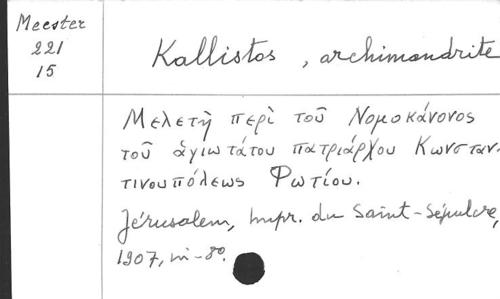 Meester
221
15
Kallistos, archimandrite
Μελετὴ περὶ τοῦ Νομοκάνονος
τοῦ ἁγιωτάτου πατριάρχου Κωνσταν-
τινουπόλεως Φωτίου.
Jérusalem, Impr. du Saint-Sépulcre,
1907, in-8º.